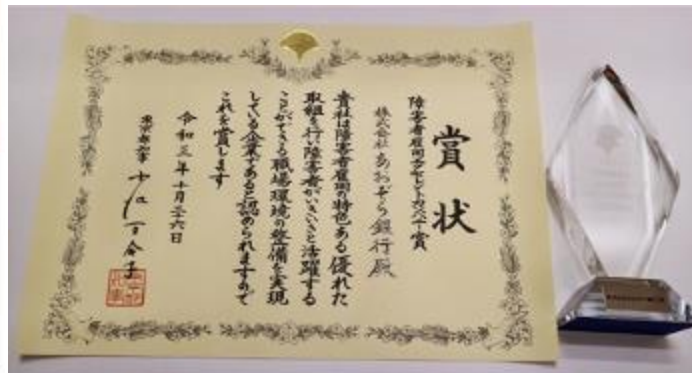 賞状
障害者雇用エクセレントカンパニー賞
株式会社 あおぞら銀行殿
貴社は障害者雇用の特色ある優れた
取組を行い障害者がいきいきと活躍する
ことができる職場環境の整備を実現
している企業であると認められますので
これを賞します
令和三年十月二十六日
東京都知事 小池百合子